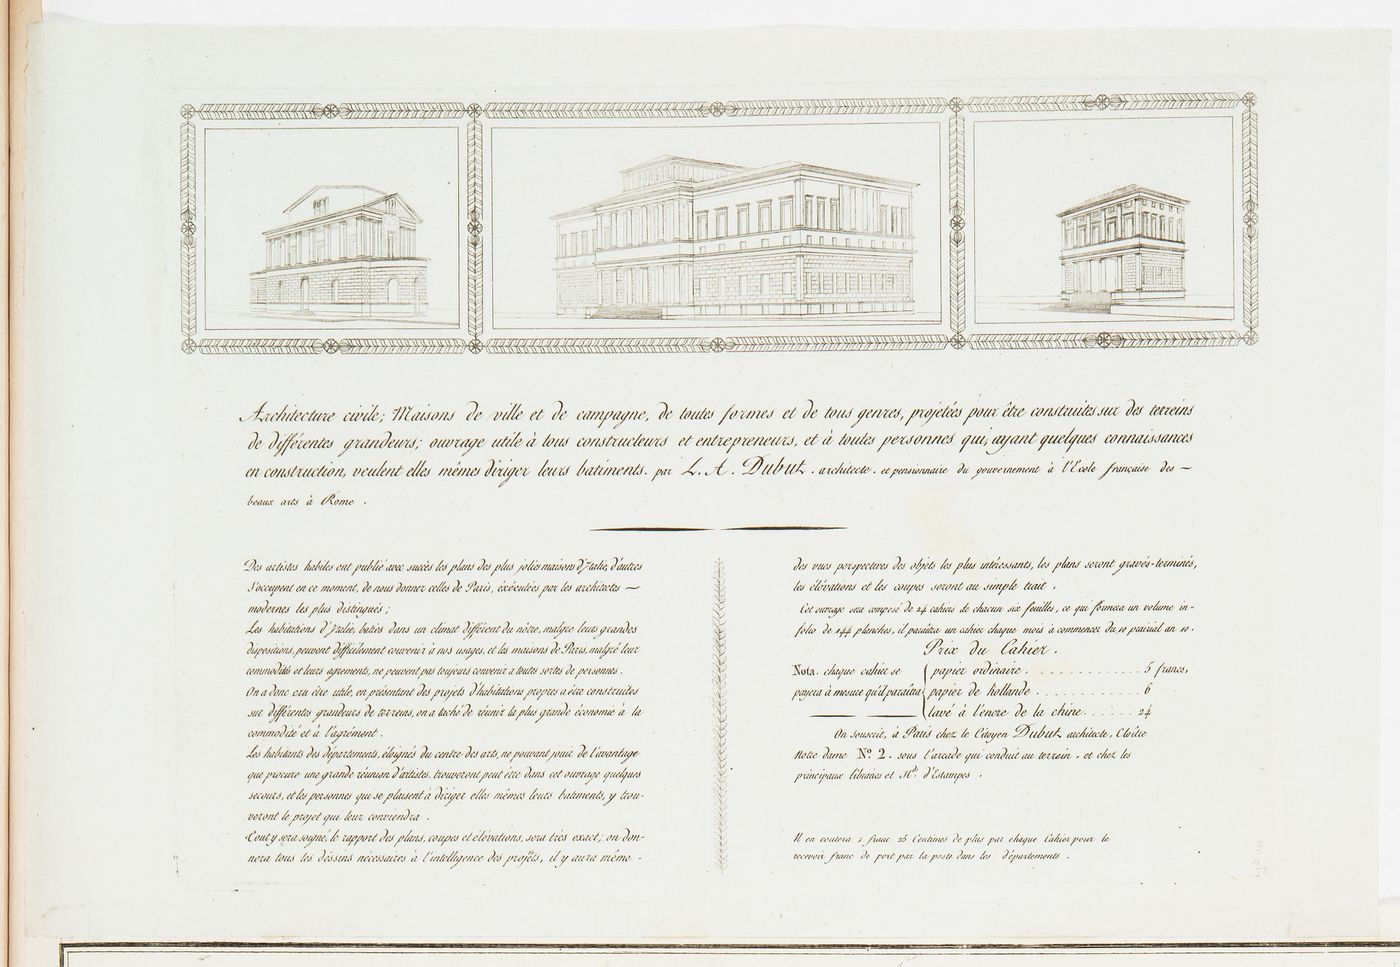 Architecture civile; Maisons de ville et de campagne, de toutes formes et de tous genres, projetées pour être construites sur des terreins
de différentes grandeurs; ouvrage utile à tous constructeurs et entrepreneurs, et à toutes personnes qui, ayant quelques connaissances
en construction, veulent elles mêmes diriger leurs batiments. par L. A. Dubut. architecte. et pensionnaire du gouvernement à l'Ecole française des
beaux arts à Rome.
Des artistes habiles ont publié avec succès les plans des plus jolies maisons d'Italie, d'autres
s'occupent en ce moment, de nous donner celles de Paris, éxécutées par les architectes
modernes les plus distingués;
Les habitations d'Italie, baties dans un climat différent du nôtre, malgre leurs grandes
dispositions, peuvent difficilement convenir à nos usages, et les maisons de Paris, malgré leur
commodités et leurs agrements, ne peuvent pas toujours convenir a toutes sortes de personnes.
On a donc cru être utile, en présentant des projets d'habitations propres a être construites
sur différentes grandeurs de terreins, on a taché de réunir la plus grande économie à la
commodité et à l'agrément.
Les habitants des départements, éloignés du centre des arts, ne pouvant jouir de l'avantage
que procure une grande réunion d'artistes, trouveront peut être dans cet ouvrage quelques
secours, et les personnes qui se plaisent à diriger elles mêmes leurs batiments, y trou-
veront le projet qui leur conviendra.
Tout y sera soigné, le rapport des plans, coupes et élévations, sera très exact; on don-
nera tous les déssins nécessaires à l'intelligence des projets, il y aura même
des vues perspectives des objets les plus intéressants, les plans seront gravés-terminés,
les élévations et les coupes seront au simple trait.
Cet ouvrage sera composé de 24 cahiers de chacun six feuilles, ce qui formera un volume in-
folio de 144 planches, il paraîtra un cahier chaque mois à commencer du 10 prairial an 10.
Prix du Cahier.
Nota. chaque cahier se payera à mesure qu'il paraîtra
papier ordinaire . . . . . . . . . . . . . 5 francs,
papier de hollande . . . . . . . . . . . . 6
lavé à l'encre de la chine . . . . . . 24
On souscrit, à Paris chez le Citoyen Dubut architecte, Cloître
Notre dame No. 2. sous l'arcade qui conduit au terrein. et chez les
principaux libraires et Mds. d'Estampes.
Il en coutera 1 franc 25 Centimes de plus par chaque Cahier pour le
recevoir franc de port par la poste dans les départements.